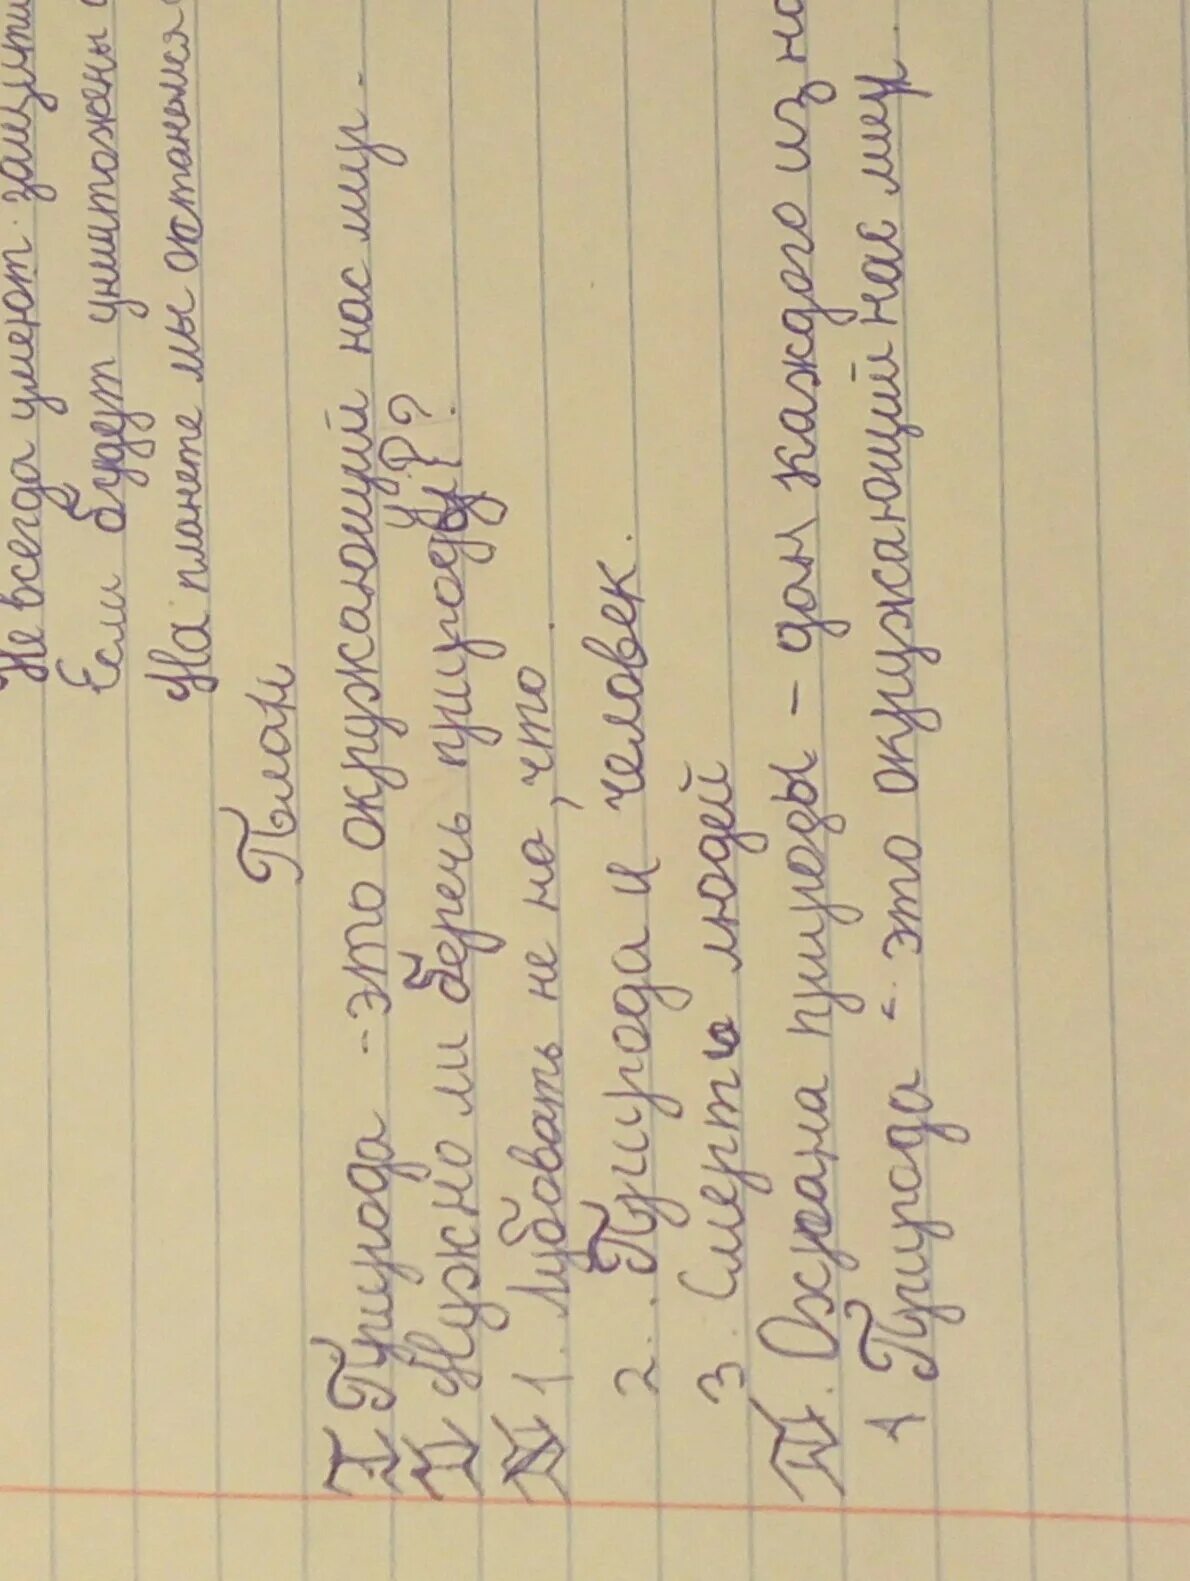 Не всегда умеют защити
Если будут уништожены
На планете мы останемся
План
I Природа - это окружающий нас мир.
II Нужно ли беречь природу?
1. Лубовать не но, что
2. Природа и человек.
3. Смерть людей
III. Охрана природы - дом каждого из на
1 Природа - это окружающий нас мир.